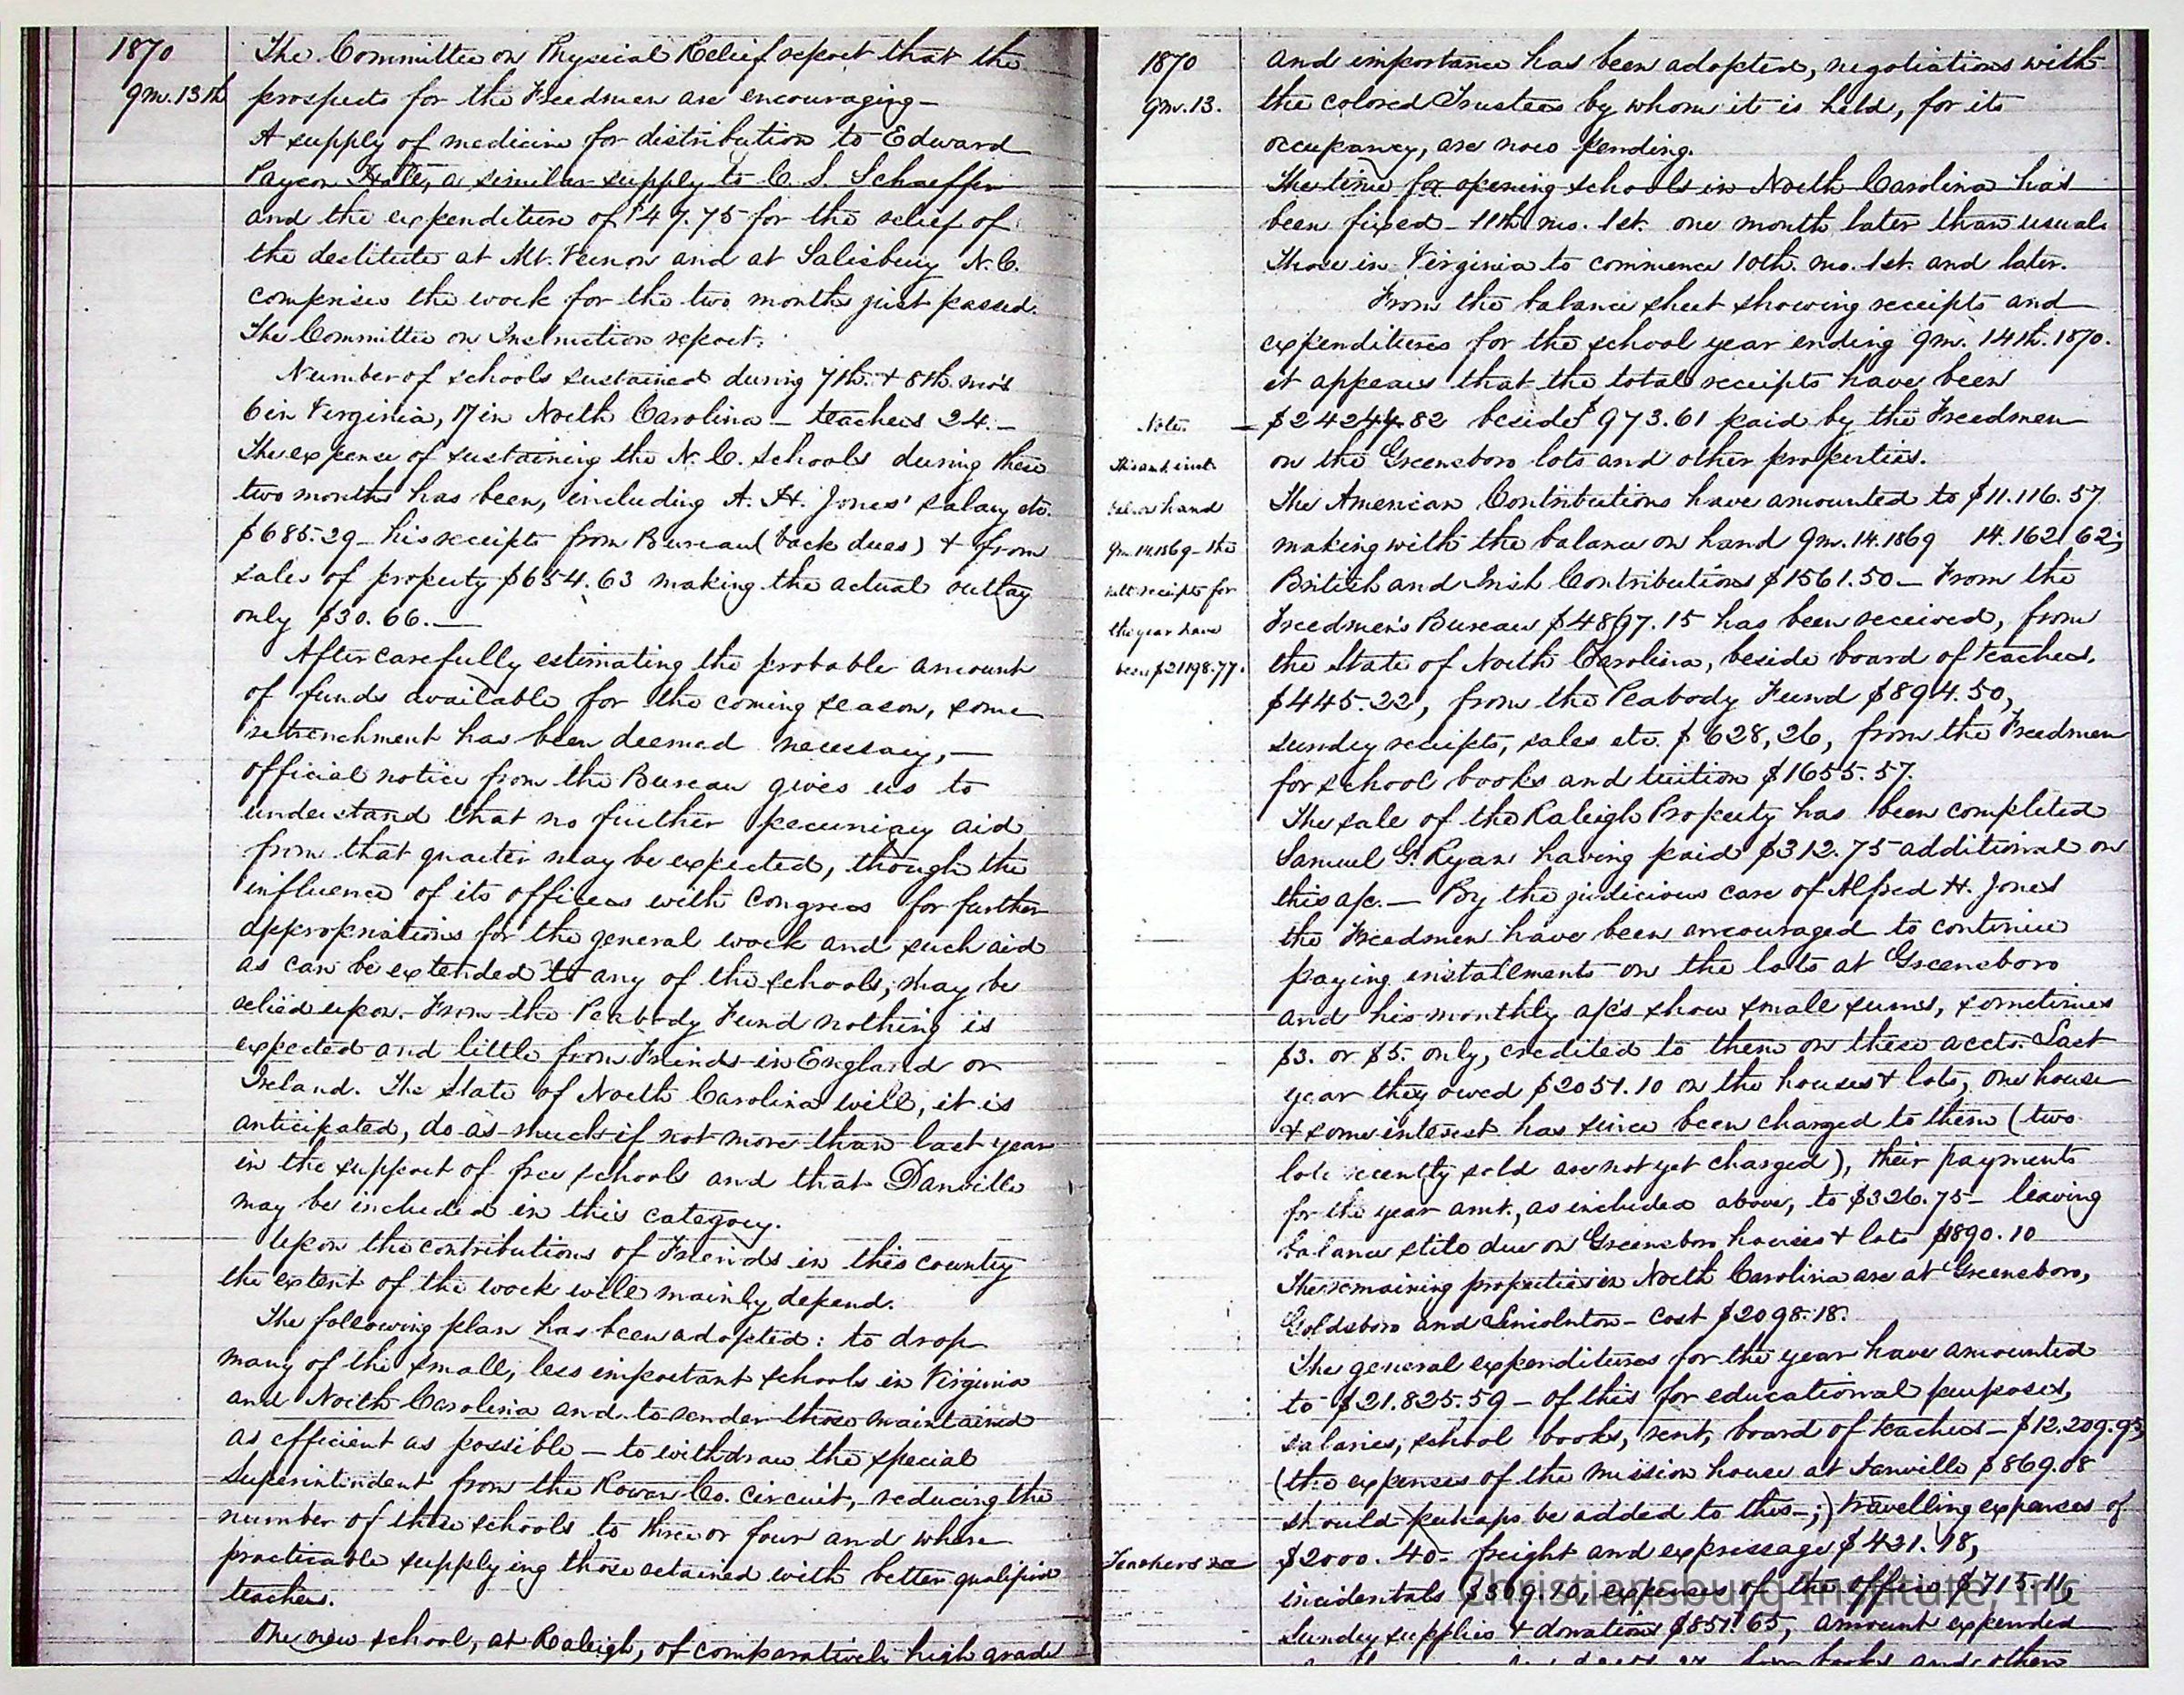 1870
9m. 13th
The Committee on Physical Relief report that the
prospects for the Freedmen are encouraging—
A supply of medicine for distribution to Edward
Payson Hall, a similar supply to C. S. Schaeffer
and the expenditure of $47.75 for the relief of
the destitute at Mt. Vernon and at Salisbury N.C.
comprises the work for the two months just passed.
The Committee on Instruction report:
Number of schools sustained during 7th. + 8th. mo's
6 in Virginia, 17 in North Carolina — teachers 24.—
The expense of sustaining the N. C. schools during these
two months has been, including A. H. Jones' salary etc.
$685.29 — his receipts from Bureau (back dues) + from
sales of property $654.63 making the actual outlay
only $30.66.—
After carefully estimating the probable amount
of funds available for the coming season, some
retrenchment has been deemed necessary,—
official notice from the Bureau gives us to
understand that no further pecuniary aid
from that quarter may be expected, though the
influence of its officers with Congress for further
appropriations for the general work and such aid
as can be extended to any of the schools, may be
relied upon. From the Peabody Fund nothing is
expected and little from Friends in England or
Ireland. The State of North Carolina will, it is
anticipated, do as much if not more than last year
in the support of free schools and that Danville
may be included in this category.
Upon the contributions of Friends in this country
the extent of the work will mainly depend.
The following plan has been adopted: to drop
many of the small, less important schools in Virginia
and North Carolina and to render those maintained
as efficient as possible — to withdraw the special
superintendent from the Rowan Co. circuit, reducing the
number of these schools to three or four and where
practicable supplying those retained with better qualified
teachers.
The new school, at Raleigh, of comparatively high grade
1870
9m. 13.
and importance has been adopted, negotiations with
the colored Trustees by whom it is held, for its
occupancy, are now pending.
The time for opening schools in North Carolina has
been fixed — 11th mo. 1st. one month later than usual.
Those in Virginia to commence 10th. mo. 1st. and later.
From the balance sheet showing receipts and
expenditures for the school year ending 9m. 14th. 1870.
it appears that the total receipts have been
$24244.82 beside $973.61 paid by the Freedmen
on the Greensboro lots and other properties.
The American Contributions have amounted to $11.116.57
making with the balance on hand 9m. 14. 1869 14.162.62;
British and Irish Contributions $1561.50 — From the
Freedmen's Bureau $4897.15 has been received, from
the State of North Carolina, beside board of teachers,
$445.22, from the Peabody Fund $894.50,
sundry receipts, sales etc. $628,26, from the Freedmen
for school books and tuition $1655.57.
Note.
This amt. incl.
bal. on hand
9m. 14. 1869 — the
nett receipts for
the year have
been $21198.77.
The sale of the Raleigh Property has been completed
Samuel G. Ryan having paid $312.75 additional on
this a/c. — By the judicious care of Alfred H. Jones
the Freedmen have been encouraged to continue
paying installments on the lots at Greensboro
and his monthly a/c's show small sums, sometimes
$3. or $5. only, credited to them on these accts. Last
year they owed $2051.10 on the houses + lots, one house
+ some interest has since been charged to them (two
lots recently sold are not yet charged), their payments
for the year amt., as included above, to $326.75 — leaving
balance still due on Greensboro houses + lots $1890.10
The remaining properties in North Carolina are at Greensboro,
Goldsboro and Lincolnton — cost $2098.18.
The general expenditures for the year have amounted
to $21.825.59 — of this for educational purposes,
salaries, school books, rent, board of teachers — $12.209.95
(the expenses of the mission house at Danville $869.08
should perhaps be added to this—;) travelling expenses of
Teachers &c $2000.40 — freight and expressage $421.98,
incidentals $369.70, expenses of the office $715.11,
Sundry supplies + donations $851.65, amount expended
books and other
Christiansburg Institute, Inc